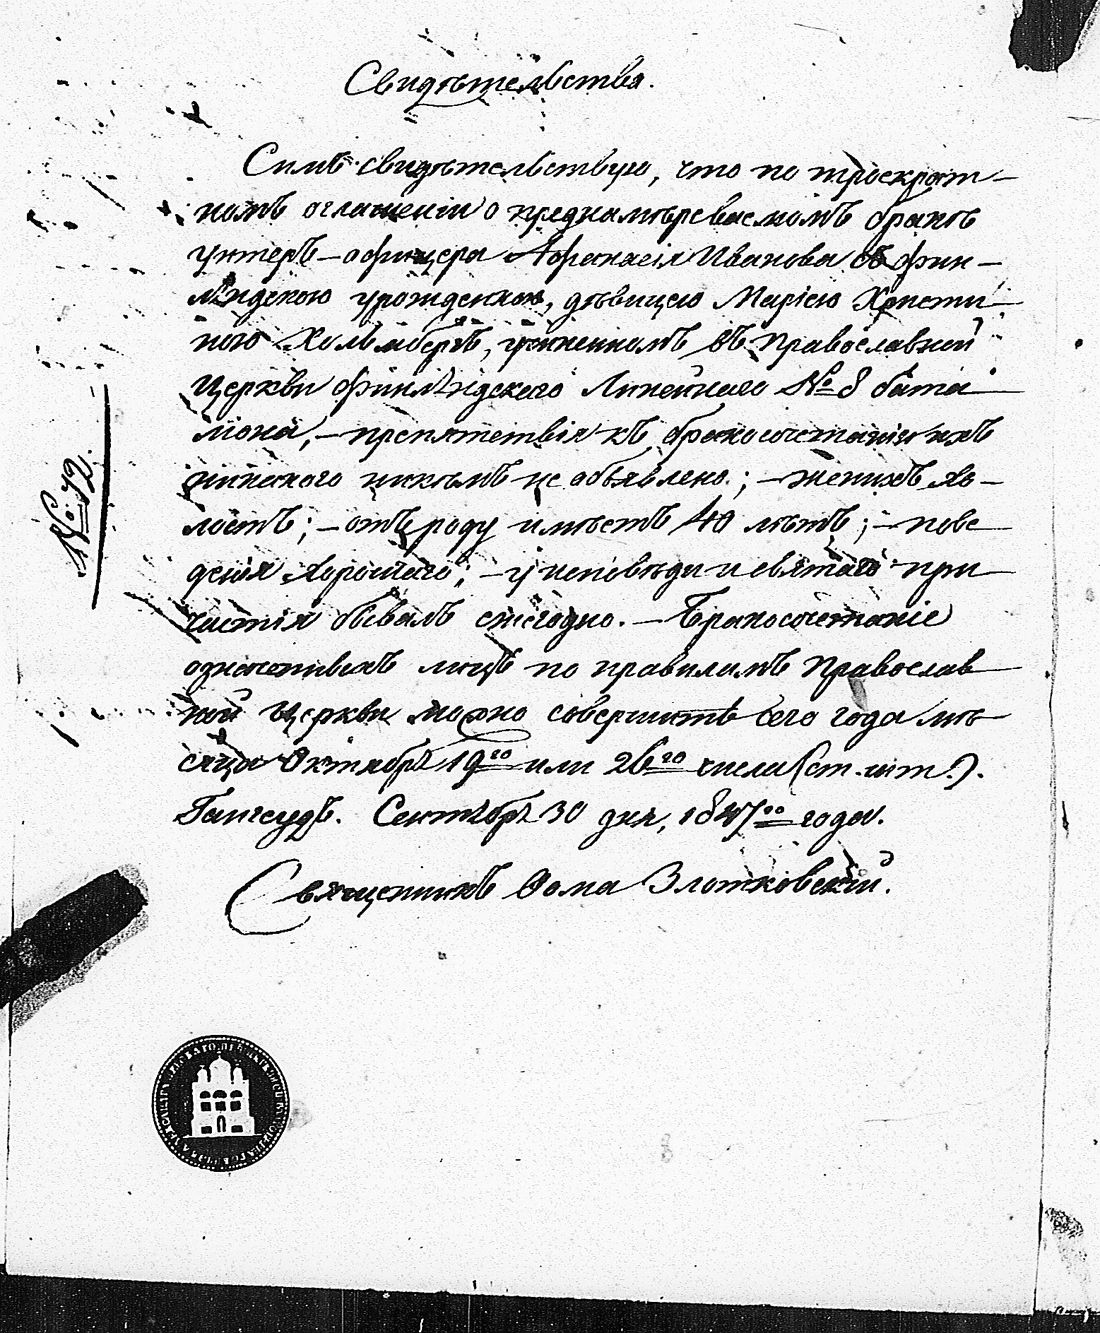 Свидѣтельства.
Симъ свидѣтельствую, что по троекрат-
номъ оглашеніи о преднамѣреваемомъ бракѣ
унтеръ-офицера Афанасія Иванова съ фин-
ляндскою уроженкою, дѣвицею Маріею Христи-
ною Хольмбергъ, учиненномъ въ Православной
Церкви Финляндскаго Линейнаго №8 бата-
ліона, - препятствія къ бракосочетанію ихъ
никакого никѣмъ не объявлено; - женихъ хо-
лостъ; - отъ роду имѣетъ 40 лѣтъ; - пове-
денія хорошаго; - у исповѣди и святаго при-
частія бывалъ ежегодно. - Бракосочетаніе
лицъ по правиламъ Православ-
ной Церкви можно совершить сего года мѣ-
сяца Октября 19го или 26го числа (ст. шт.).
Сентября 30 дня, 1847го года.
Священникъ Ѳома Злотковскій.
№: 72.